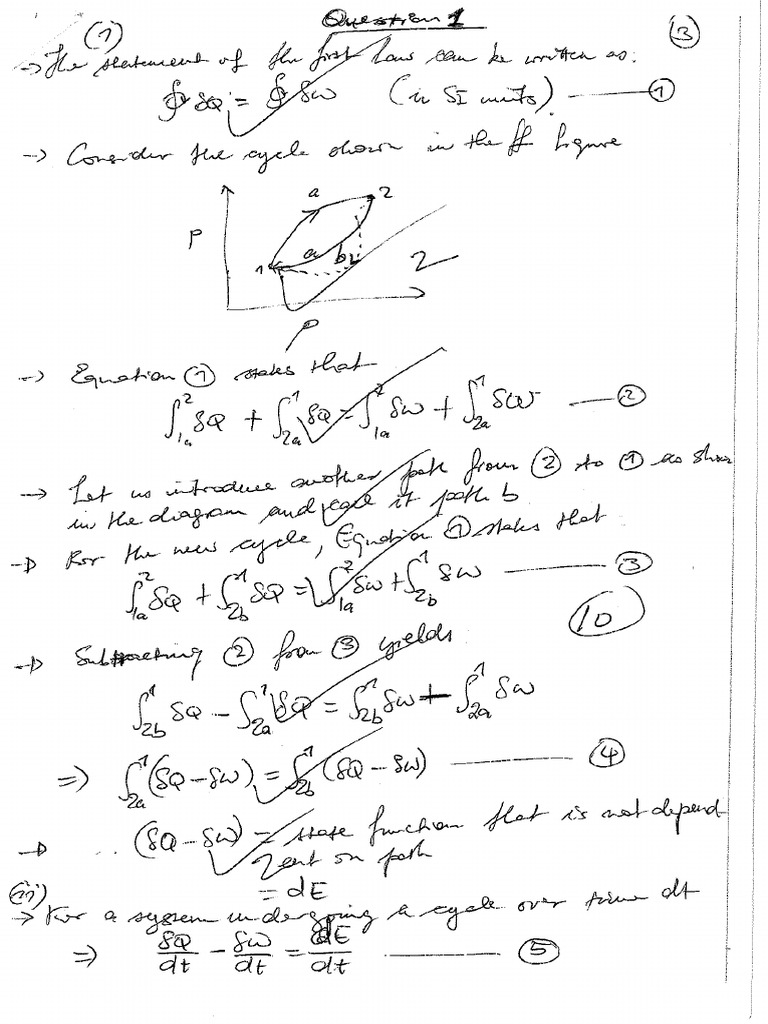 Question 1
(1) (3)
→ The statement of the first law can be written as:
∮ δQ = ∮ δW (in SI units) — (1)
→ Consider the cycle shown in the ff figure
a 2
P 1 a b 2
P
→ Equation (1) states that
∫₁ₐ² δQ + ∫₂ₐ¹ δQ = ∫₁ₐ² δW + ∫₂ₐ¹ δW — (2)
→ Let us introduce another path from (2) to (1) as shown
in the diagram and call it path b
→ For the new cycle, Equation (1) states that
∫₁ₐ² δQ + ∫₂b¹ δQ = ∫₁ₐ² δW + ∫₂b¹ δW — (3)
(10)
→ Subtracting (2) from (3) yields
∫₂b¹ δQ - ∫₂ₐ¹ δQ = ∫₂b¹ δW - ∫₂ₐ¹ δW
⇒ ∫₂ₐ¹ (δQ - δW) = ∫₂b¹ (δQ - δW) — (4)
→ ∴ (δQ - δW) = state function that is not depend
ent on path
= dE
(ii)
→ For a system undergoing a cycle over time dt
⇒ δQ/dt - δW/dt = dE/dt — (5)